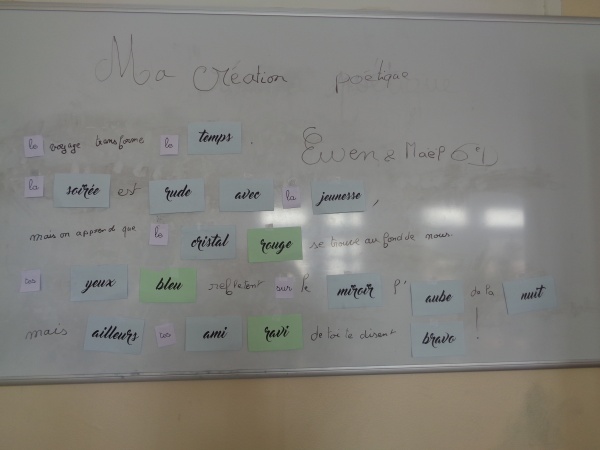 Ma création poétique
le voyage transforme le temps.
Ewen & Maep 6e1
la soirée est rude avec la jeunesse,
mais on apprend que le cristal rouge se trouve au fond de nous.
ces yeux bleu reflètent sur le miroir l'aube de la nuit
mais ailleurs ces ami ravi de toi te disent bravo !